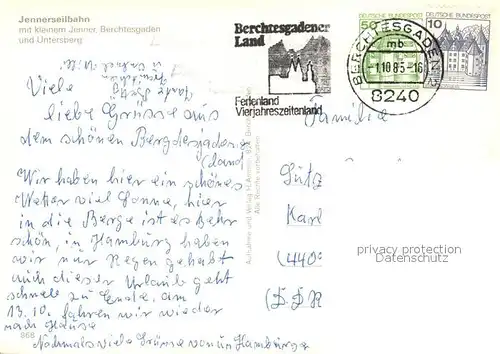 Jennerseilbahn
mit kleinem Jenner, Berchtesgaden
und Untersberg
Berchtesgadener
Land
Ferienland
Vierjahreszeitenland
50 DEUTSCHE BUNDESPOST
10 DEUTSCHE BUNDESPOST
BERCHTESGADEN 1
mb
-1.10.85-16
8240
Viele
liebe Grüsse aus
dem schönen Bergdesgadener
Land
Wir haben hier ein schönes
Wetter viel Sonne, hier
in die Berge ist es sehr
schön, in Hamburg haben
wir nur Regen gehabt
auch dieser Urlaub geht
schnell zu Ende, am
13.10. fahren wir wieder
nach Hause
Nochmals viele Grüsse von un Hamburger
868
Aufnahme und Verlag
Alle Rechte vorbehalten
Familie
Götz
Karl
(440
(DDR
privacy protection
Datenschutz